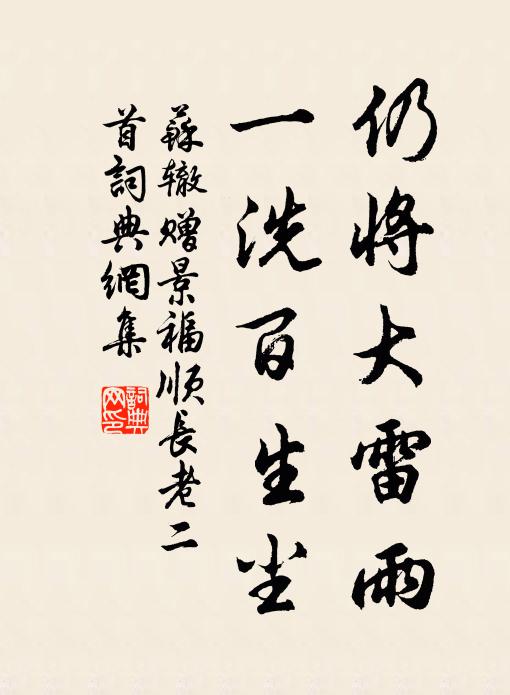 仍将大雷雨
一洗百生尘
蘇辙赠景福顺長老二
首詞典網集
詞典网印